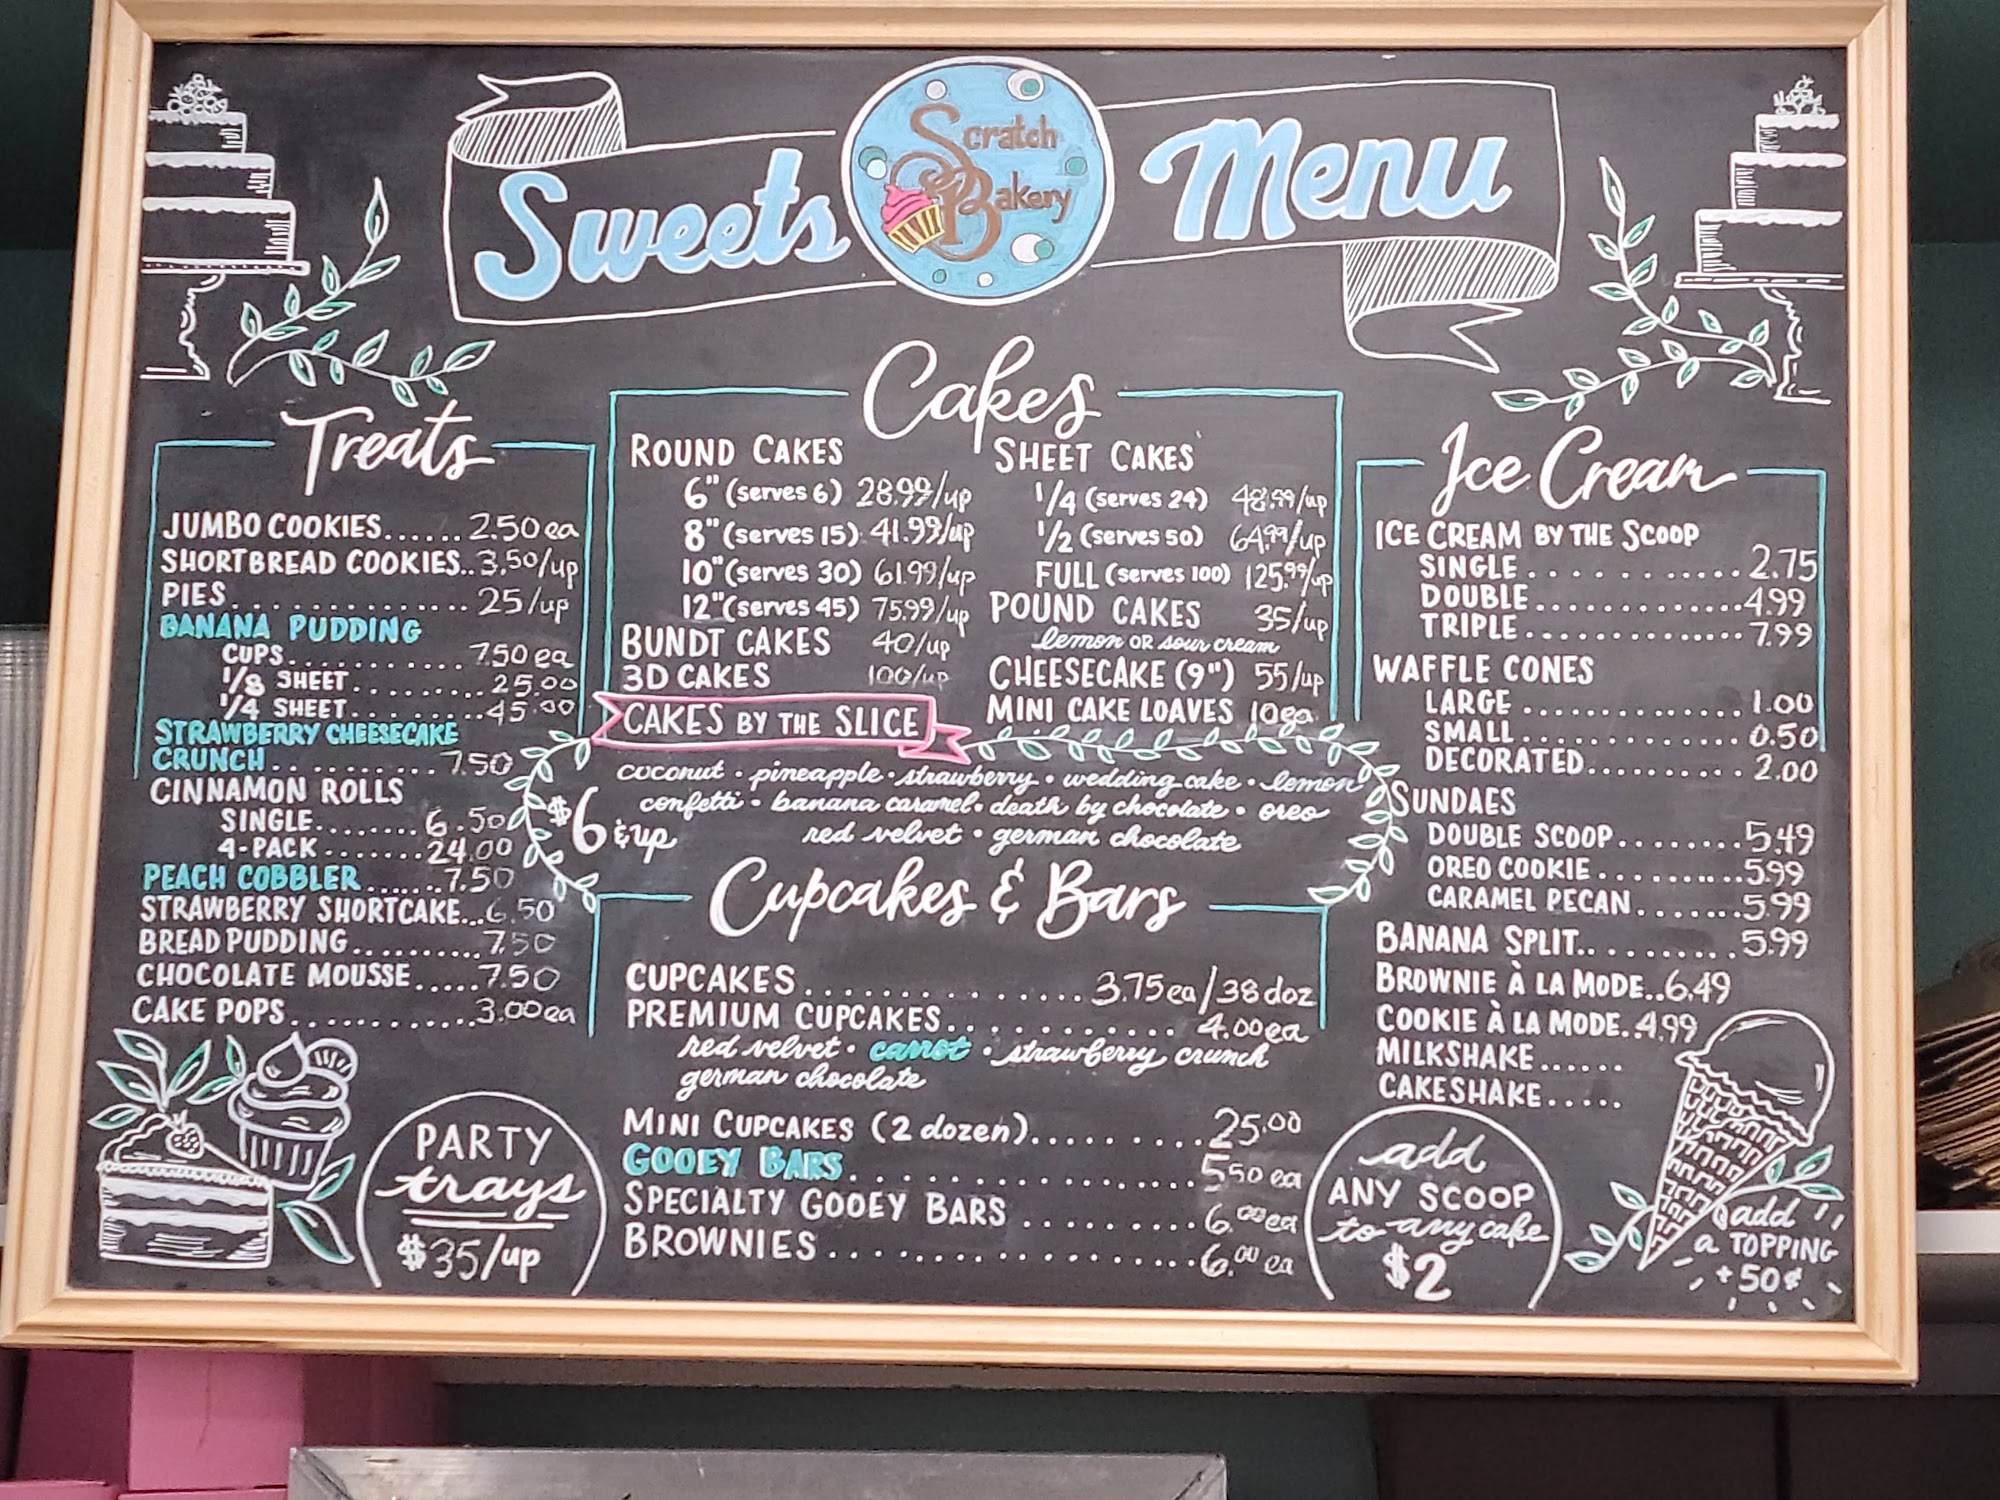 Sweets
Scratch
Bakery
Menu
Treats
JUMBO COOKIES...... 2.50 ea
SHORTBREAD COOKIES.. 3.50/up
PIES.............. 25/up
BANANA PUDDING
CUPS............ 7.50 ea
1/8 SHEET......... 25.00
1/4 SHEET......... 45.00
STRAWBERRY CHEESECAKE
CRUNCH........... 7.50
CINNAMON ROLLS
SINGLE........ 6.50
4-PACK....... 24.00
PEACH COBBLER...... 7.50
STRAWBERRY SHORTCAKE... 6.50
BREAD PUDDING.......... 7.50
CHOCOLATE MOUSSE..... 7.50
CAKE POPS............. 3.00 ea
PARTY
trays
$35/up
Cakes
ROUND CAKES
6" (serves 6) 28.99/up
8" (serves 15) 41.99/up
10" (serves 30) 61.99/up
12" (serves 45) 75.99/up
BUNDT CAKES 40/up
3D CAKES 100/up
SHEET CAKES
1/4 (serves 24) 48.99/up
1/2 (serves 50) 64.99/up
FULL (serves 100) 125.99/up
POUND CAKES 35/up
lemon OR sour cream
CHEESECAKE (9") 55/up
MINI CAKE LOAVES 10 ea
CAKES BY THE SLICE
$6 & up
coconut • pineapple • strawberry • wedding cake • lemon
confetti • banana caramel • death by chocolate • oreo
red velvet • german chocolate
Cupcakes & Bars
CUPCAKES................ 3.75 ea/38 doz
PREMIUM CUPCAKES............ 4.00 ea
red velvet • carrot • strawberry crunch
german chocolate
MINI CUPCAKES (2 dozen).......... 25.00
GOOEY BARS................. 5.50 ea
SPECIALTY GOOEY BARS......... 6.00 ea
BROWNIES................ 6.00 ea
Ice Cream
ICE CREAM BY THE SCOOP
SINGLE............ 2.75
DOUBLE............. 4.99
TRIPLE............. 7.99
WAFFLE CONES
LARGE.............. 1.00
SMALL.............. 0.50
DECORATED.......... 2.00
SUNDAES
DOUBLE SCOOP........ 5.49
OREO COOKIE.......... 5.99
CARAMEL PECAN....... 5.99
BANANA SPLIT......... 5.99
BROWNIE À LA MODE.. 6.49
COOKIE À LA MODE.. 4.99
MILKSHAKE......
CAKESHAKE.....
add
ANY SCOOP
to any cake
$2
add
a TOPPING
+ 50¢